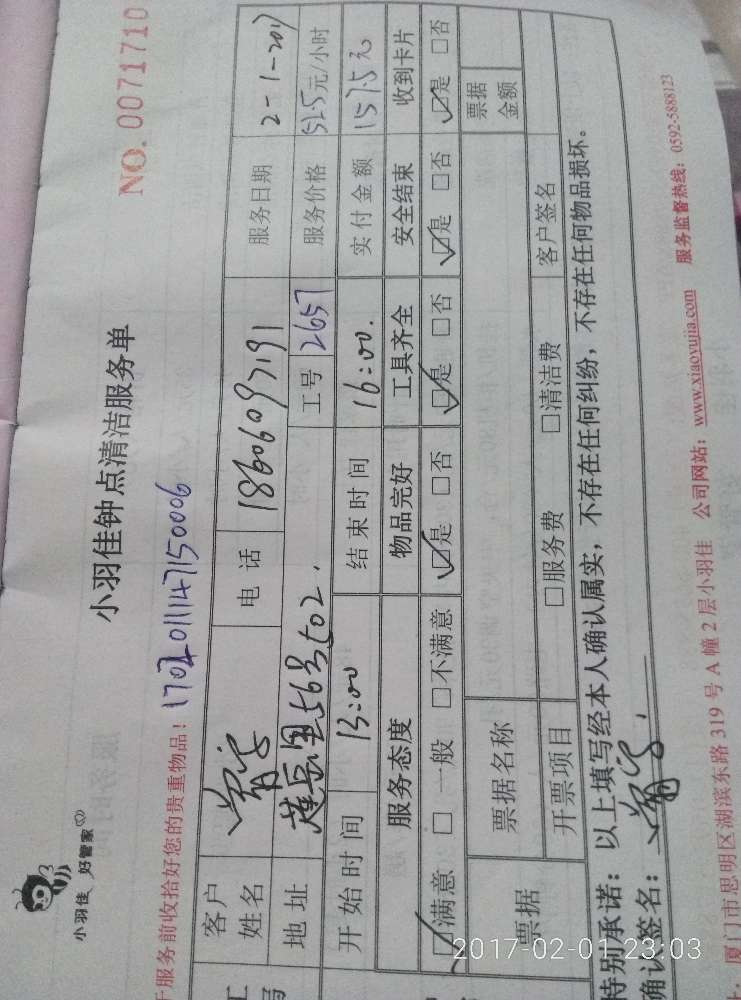 小羽佳 好管家
小羽佳钟点清洁服务单
NO. 0071710
于服务前收拾好您的贵重物品!
客户姓名 电话 服务日期 2-1-2017
地址 莲岳里56号502. 工号 2657 服务价格 52.5元/小时
开始时间 13:00 结束时间 16:00. 实付金额 157.5元
服务态度 物品完好 工具齐全 安全结束 收到卡片
☑满意 □一般 □不满意 ☑是 □否 ☑是 □否 ☑是 □否 ☑是 □否
票据 票据名称 票据金额
开票项目 □服务费 □清洁费 客户签名
特别承诺:以上填写经本人确认属实,不存在任何纠纷,不存在任何物品损坏。
确认签名:
厦门市思明区湖滨东路319号A幢2层小羽佳 公司网站:www.xiaoyujia.com 服务监督热线:0592-5888123
2017-02-01 23:03